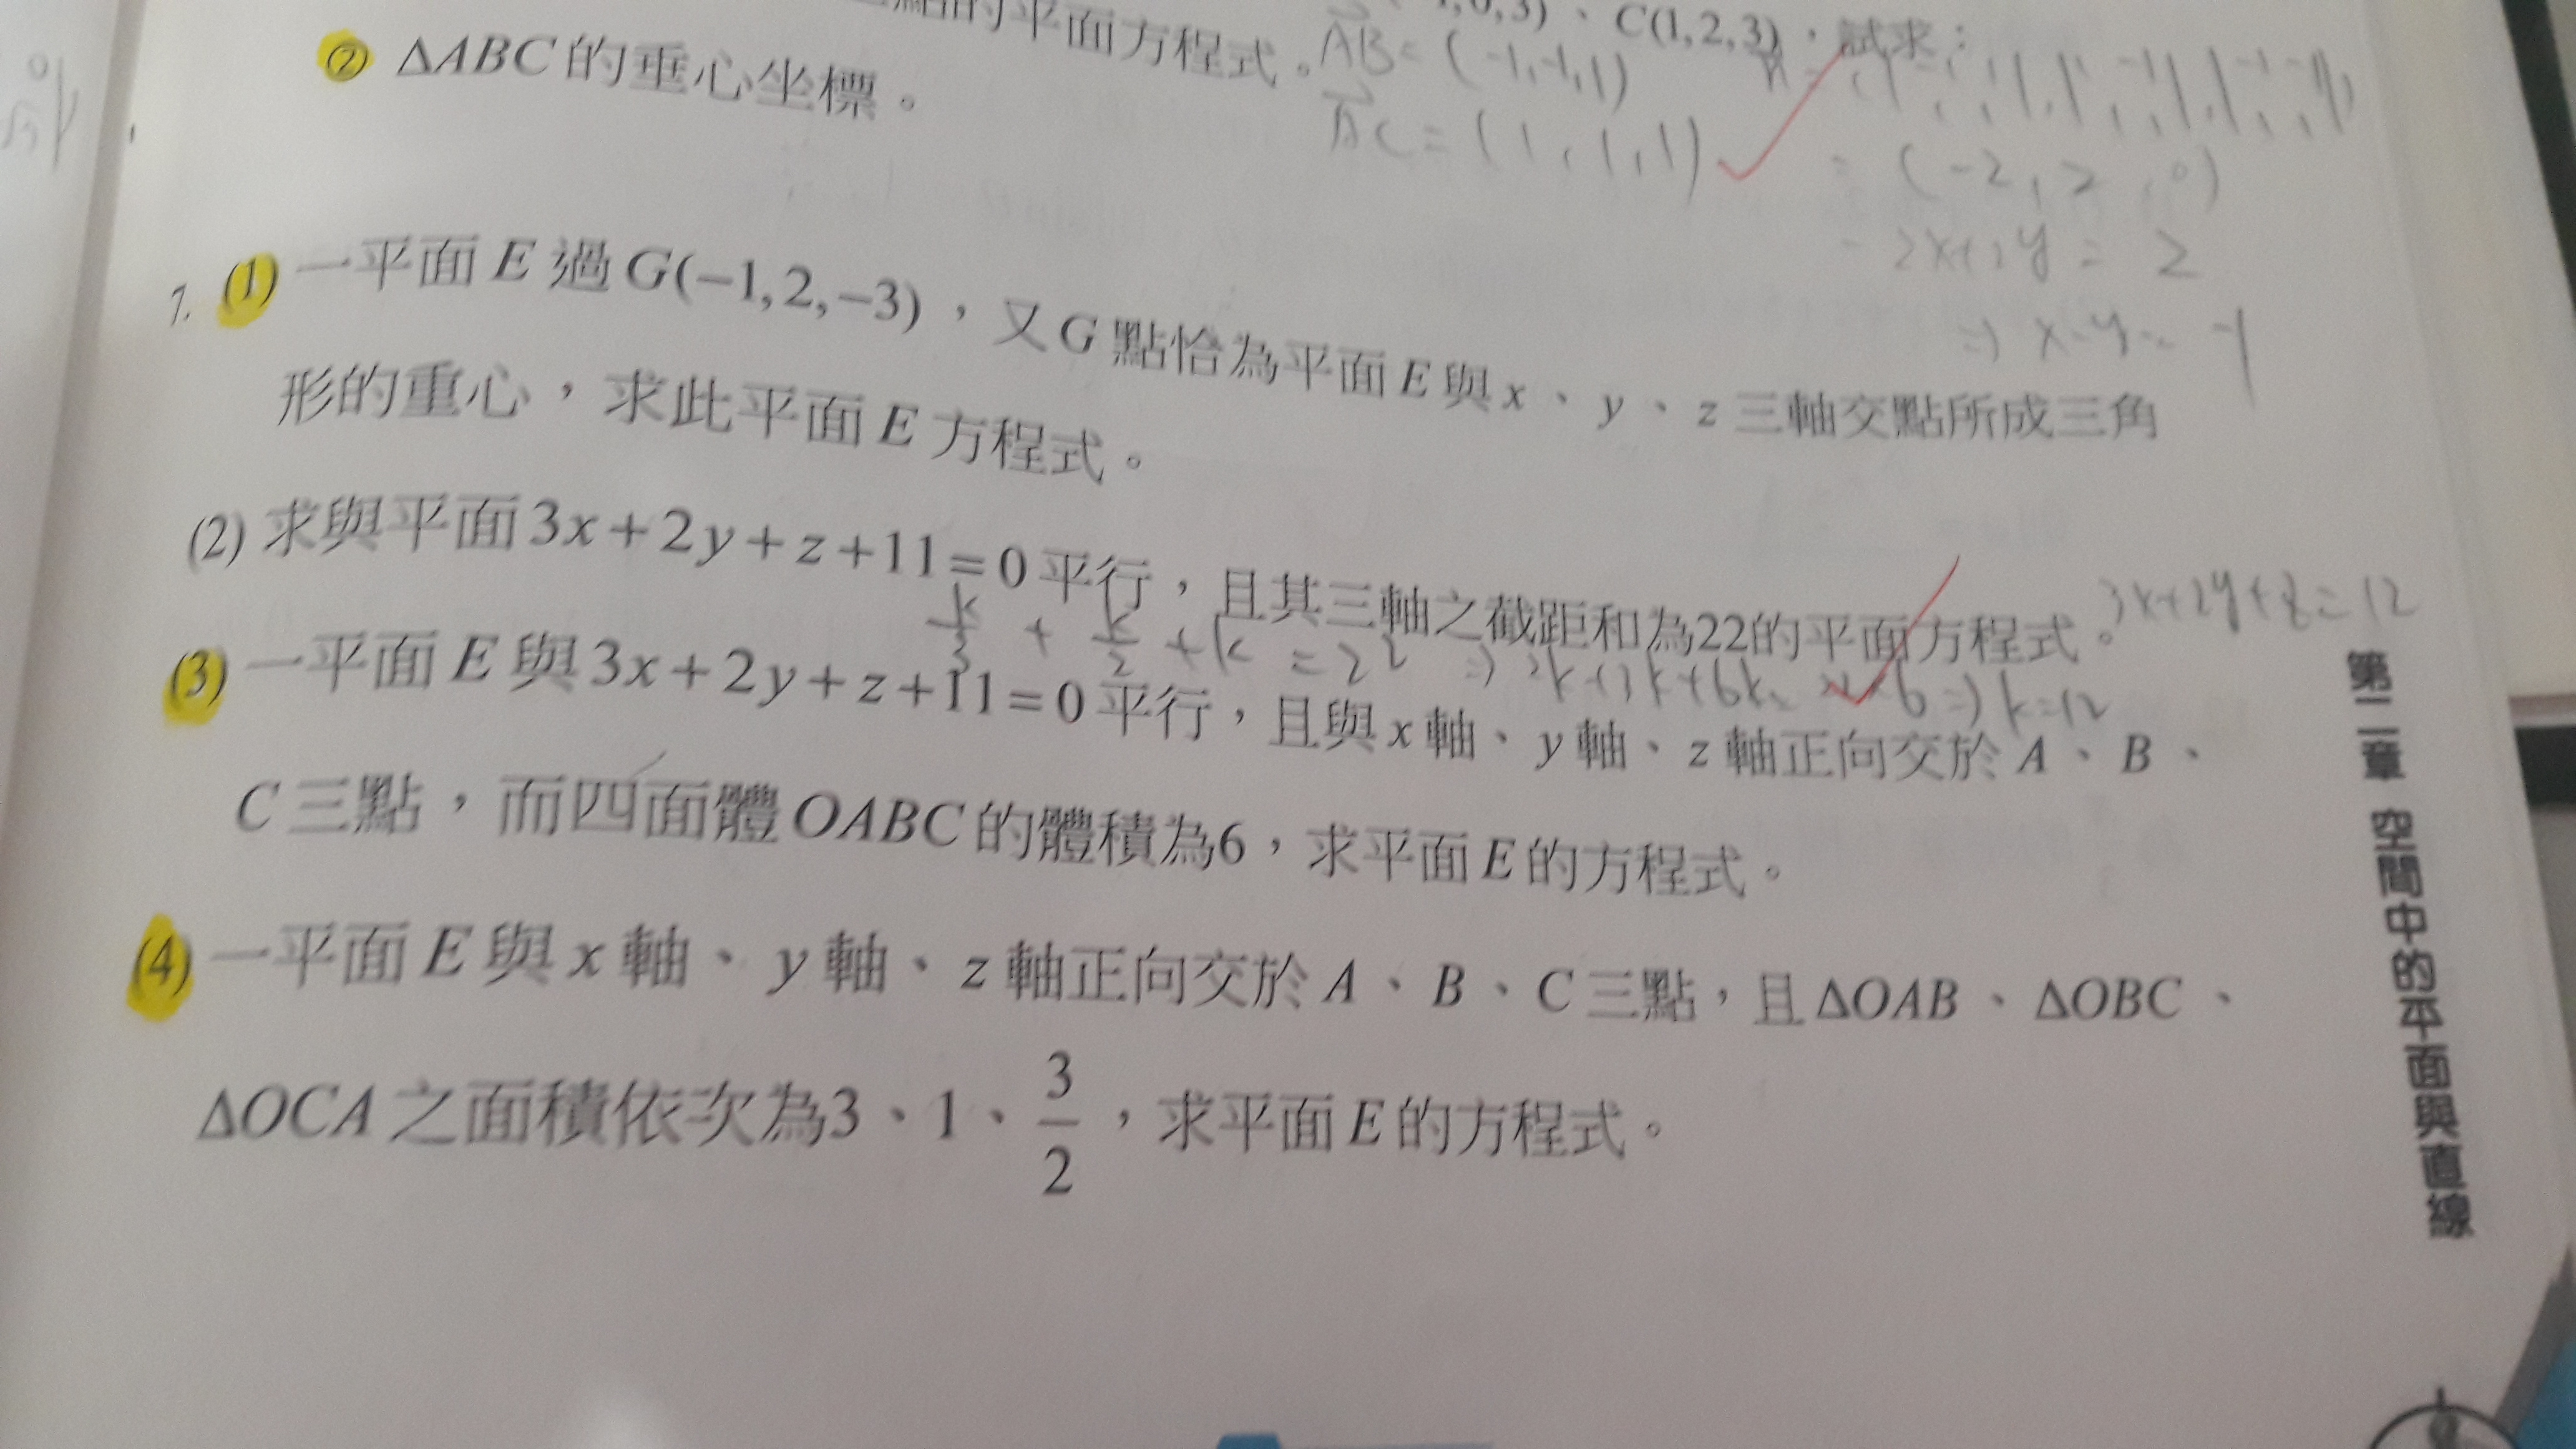 的平面方程式。
,0,3)、C(1,2,3),試求:
② ΔABC的垂心坐標。
AB = (-1,-1,1)
AC = (1,1,1)
= (-2, 2, 0)
-2x+2y = 2
⇒ x-y = -1
7. (1) 一平面E過G(−1,2,−3),又G點恰為平面E與x、y、z三軸交點所成三角
形的重心,求此平面E方程式。
(2) 求與平面3x+2y+z+11=0平行,且其三軸之截距和為22的平面方程式。
3x+2y+z=12
k/3 + k/2 + k = 22
⇒ k=12
(3) 一平面E與3x+2y+z+11=0平行,且與x軸、y軸、z軸正向交於A、B、
C三點,而四面體OABC的體積為6,求平面E的方程式。
(4) 一平面E與x軸、y軸、z軸正向交於A、B、C三點,且ΔOAB、ΔOBC、
ΔOCA之面積依次為3、1、3/2,求平面E的方程式。
第二章 空間中的平面與直線